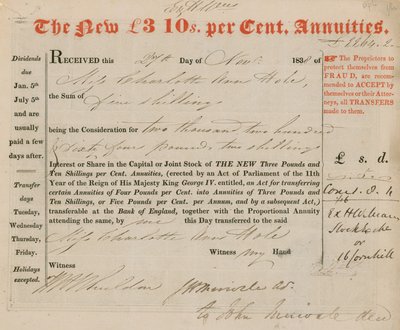 The New £3 10s. per Cent. Annuities.
£2264.2.
Dividends
due
Jan. 5th
July 5th
and are
usually
paid a few
days after.
Transfer
days
Tuesday,
Wednesday
Thursday,
Friday.
Holidays
excepted.
RECEIVED this Day of Novr. 183
Miss Charlotte Ann Hole,
the Sum of
Five shillings
being the Consideration for Two thousand two hundred
Sixty four pounds, two shillings
Interest or Share in the Capital or Joint Stock of THE NEW Three Pounds and
Ten Shillings per Cent. Annuities, (erected by an Act of Parliament of the 11th
Year of the Reign of His Majesty King George IV. entitled, an Act for transferring
certain Annuities of Four Pounds per Cent. into Annuities of Three Pounds and
Ten Shillings, or Five Pounds per Cent. per Annum, and by a subsequent Act,)
transferable at the Bank of England, together with the Proportional Annuity
attending the same, by me this Day transferred to the said
Miss Charlotte Ann Hole
Witness my Hand
Witness
Ex John dec
The Proprietors to
protect themselves from
FRAUD, are recom-
mended to ACCEPT by
themselves or their Attor-
neys, all TRANSFERS
made to them.
£ s. d.
16 Cornhill